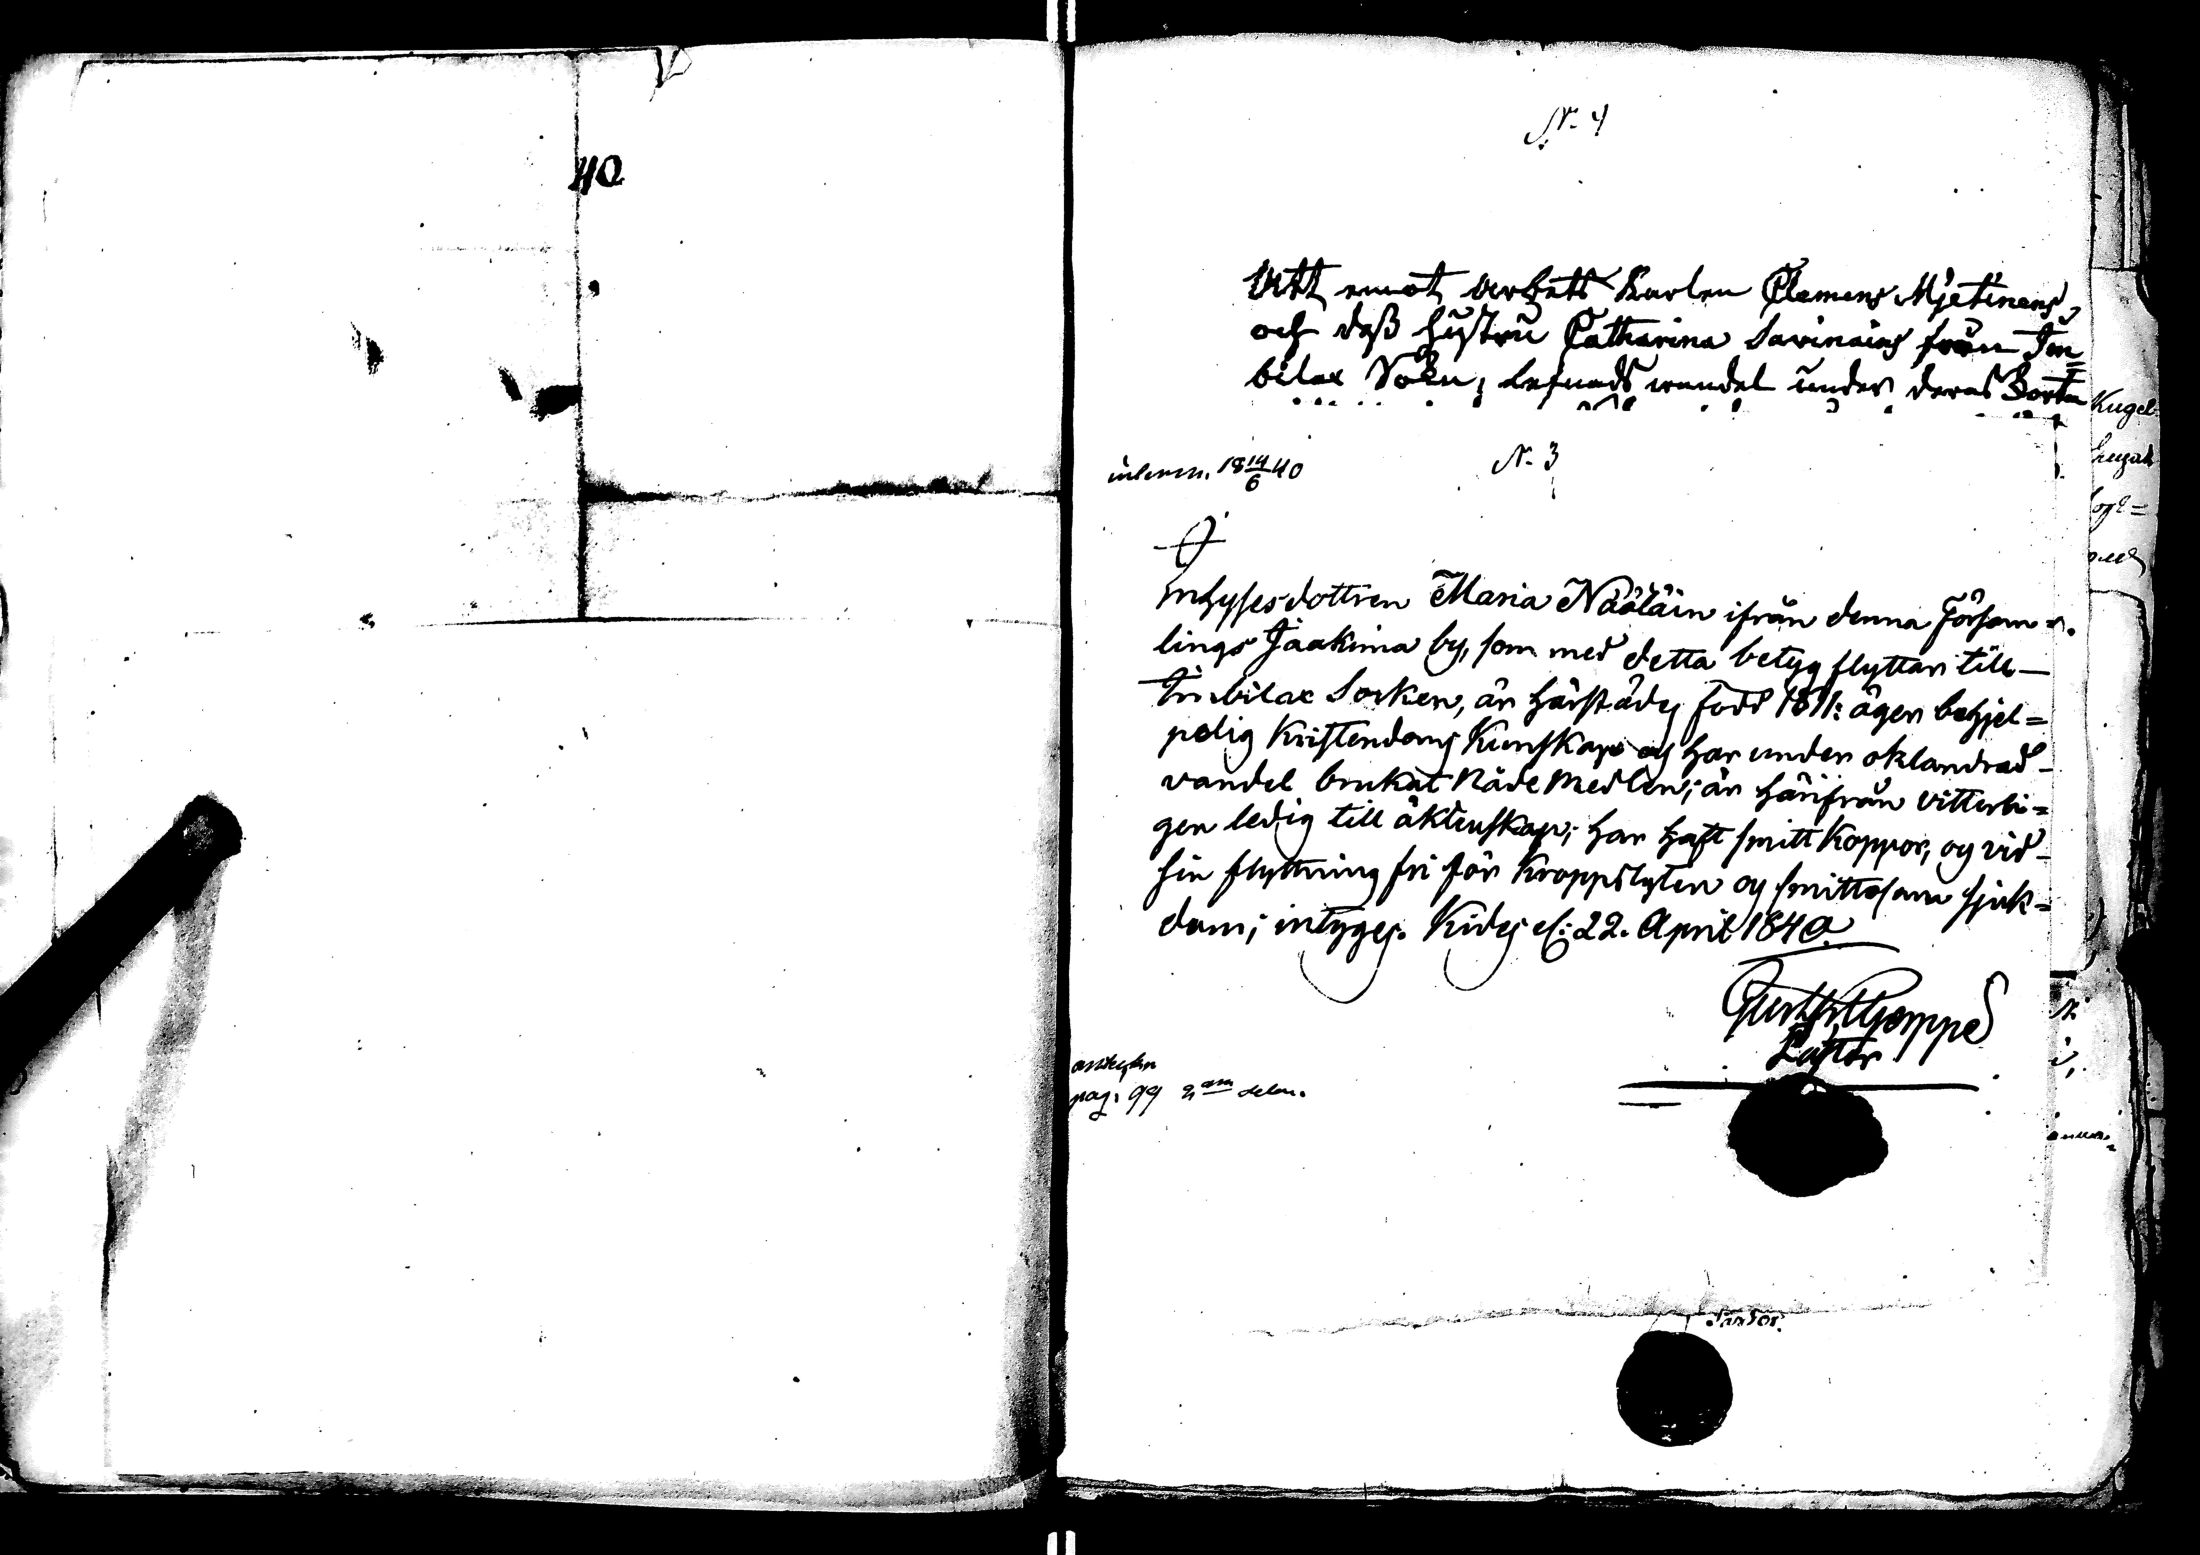 40
N. 4
Att emot arbets Karlen Clemens Mjetinens,
och dess hustru Catharina Savinäins från Im=
bilax Sokn, Lefnads wandel under deras Borta
inlemn. 18 14/6 40
N. 3
Inhysesdottren Maria Näätäin ifrån denna Försam=
lings Jaakima by, som med detta betyg flyttar till
Imbilax Socken, är härstädes född 1811: äger behjel=
pelig Kristendoms Kunskap og har under oklandrad
vandel brukat Nåde Medlen; är härifrån vitterli=
gen ledig till äktenskap; har haft smitt koppor, og vid
sin flyttning fri för Kroppslyten og smittosam sjuk=
dom; intyges. Kides d: 22. April 1840.
Pastor
pag. 99 2am delen.